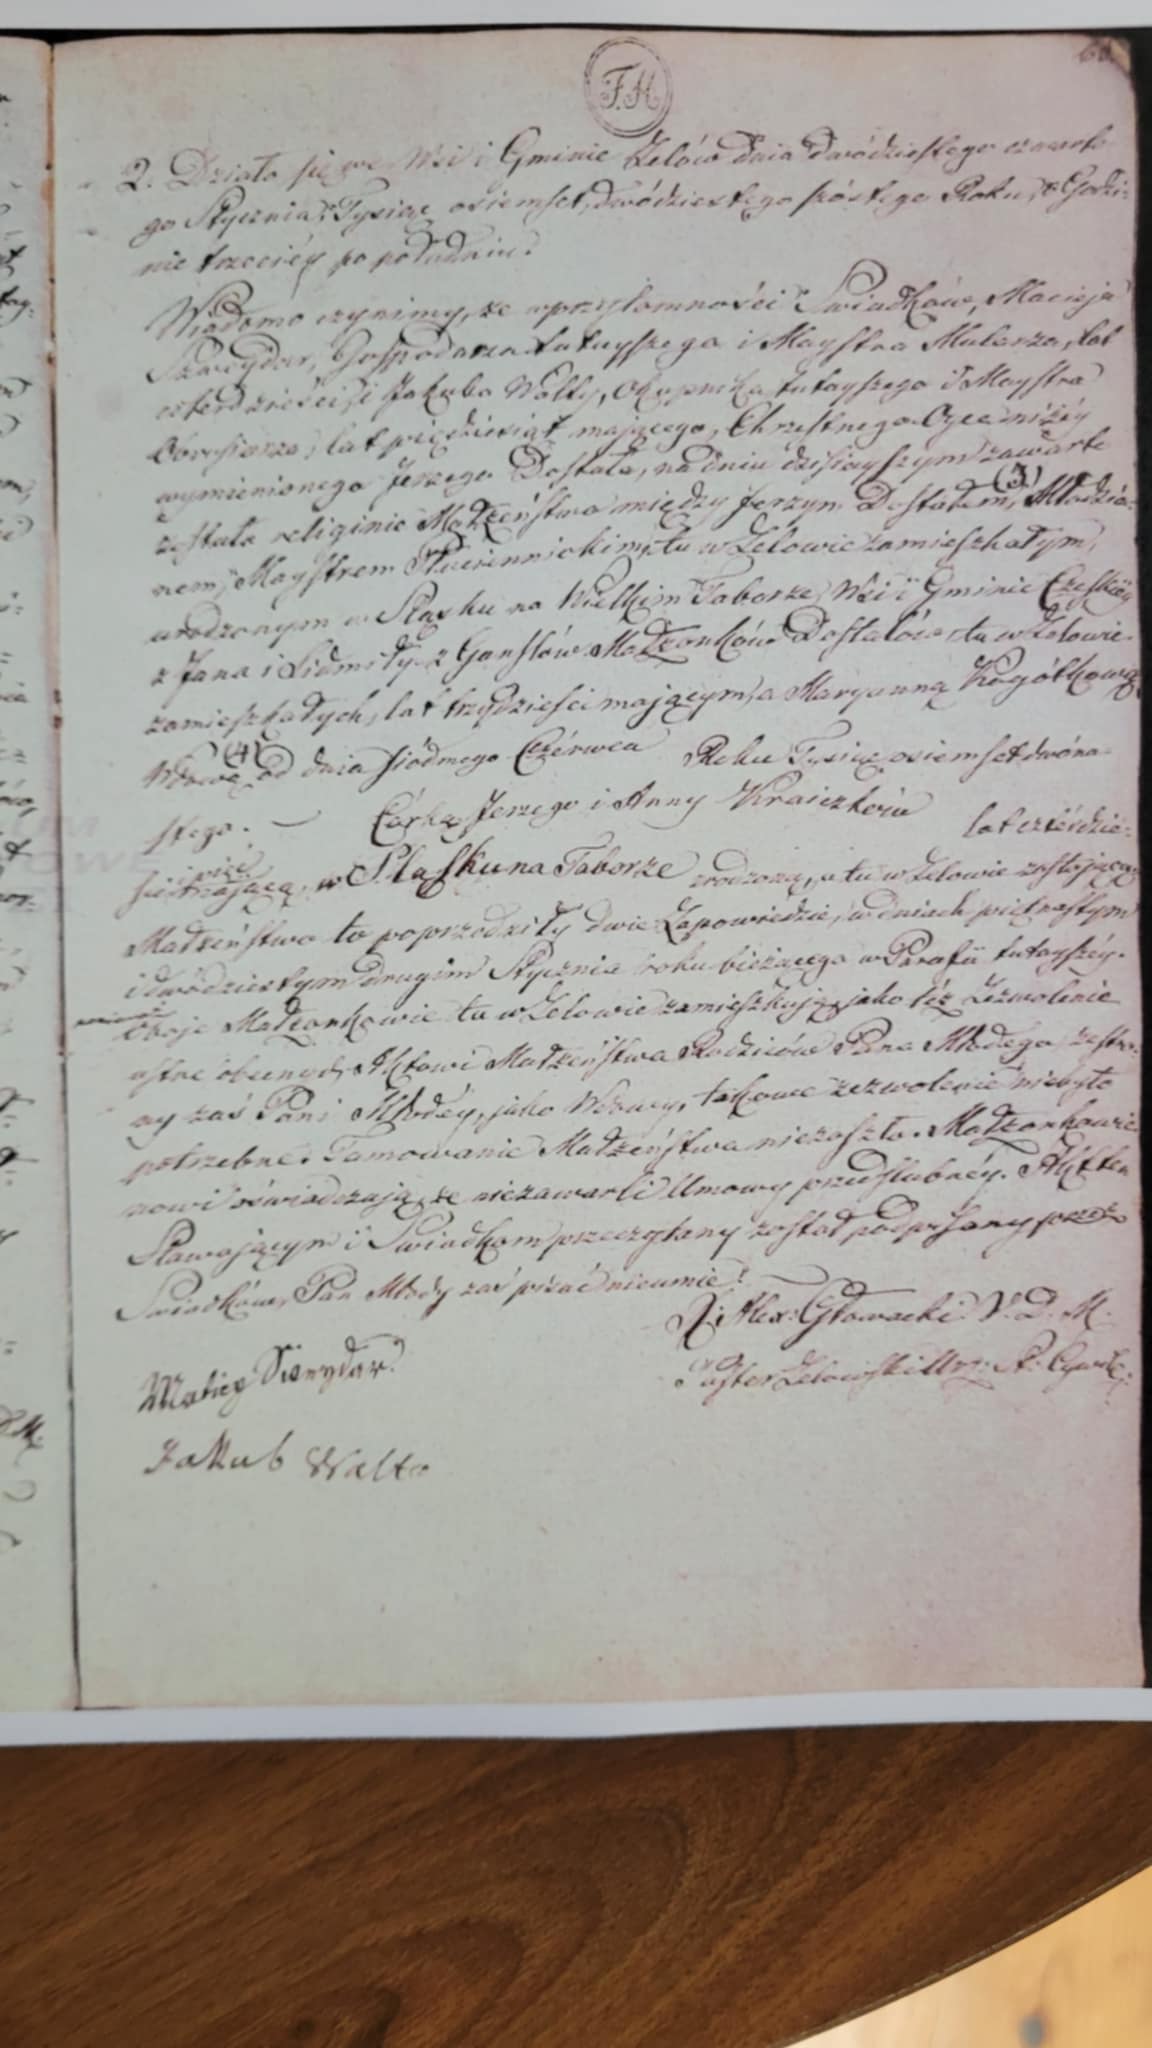 F.H
2. Działo się we Wsi i Gminie Zelów dnia dwódziestego czwarte
go Stycznia, Tysiąc ośiemset dwódziestego szóstego Roku, o Godzi-
nie trzeciéy po południu.
Wiadomo czynimy, że w przytomności Swiadków, Macieja
Gospodarza tutayszego i Maystra Mularza, lat
czterdzieści i Jakuba Walty, Okupnika tutayszego i Maystra
lat pięćdziesiąt mającego, Chrzestnego Oyca niżéy
wymienionego Jerzego Dostala, na dniu dzisiayszym zawarte
zostało religijnie Małżeństwo między Jerzym Dostalem, (3) Młodzia-
nem, Maystrem tu w Zelowie zamieszkałym,
urodzonym w Sląsku na Wielkim Taborze, Wsi i Gminie Czeskiéy
z Jana i Ludmiły z Małżonków Dostalów, tu w Zelowie
zamieszkałych, lat trzydzieści mającym, a Maryanną
(4)
Wdową od dnia siódmego Czérwca Roku Tysiąc osiemset dwóna-
stego. — Córką Jerzego i Anny lat czterdzie-
ści mającą, w Sląsku na Taborze zrodzoną, a tu w Zelowie zostającą
Małżeństwo to poprzedziły dwie Zapowiedzie, w dniach piętnastym
i dwódziestym drugim Stycznia roku bieżącego w Parafii tutayszéy.
oboje Małżonkowie tu w Zelowie zamieszkują, jako też Zezwolenie
ustne obecnych Aktowi Małżeństwa Rodziców Pana Młodego, ze stro-
ny zaś Pani Młodéy, jako Wdowy, takowe zezwolenie niebyło
potrzebne. Tamowanie Małżeństwa niezaszło. Małżonkowie
nowi oświadczają, że niezawarli Umowy przedślubnéy. Akt ten
Stawającym i Swiadkom przeczytany został podpisany przez
Swiadków, Pan Młody zaś pisać nieumie.
Alex: Głowacki V. D. M.
Paster Zelowski Urz: St: Cywil:
Jakub Walta